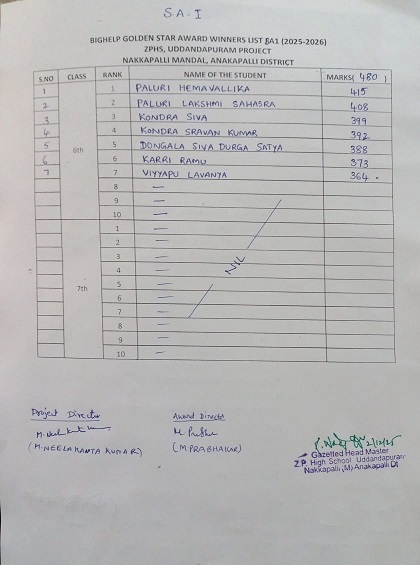 S.A-I
BIGHELP GOLDEN STAR AWARD WINNERS LIST SA1 (2025-2026)
ZPHS, UDDANDAPURAM PROJECT
NAKKAPALLI MANDAL, ANAKAPALLI DISTRICT
S.NO CLASS RANK NAME OF THE STUDENT MARKS( 480 )
1 1 PALURI HEMAVALLIKA 415
2 2 PALURI LAKSHMI SAHASRA 408
3 3 KONDRA SIVA 399
4 4 KONDRA SRAVAN KUMAR 392
5 6th 5 DONGALA SIVA DURGA SATYA 388
6 6 KARRI RAMU 373
7 7 VIYYAPU LAVANYA 364
8 —
9 —
10 —
1 —
2 —
3 —
4 — NIL
7th 5 —
6 —
7 —
8 —
9 —
10 —
Project Director Award Director
(M.NEELAKANTA KUMAR) (M PRABHAKAR)
2/12/25
Gazetted Head Master
Z.P. High School, Uddandapuram
Nakkapalli (M) Anakapalli Dt